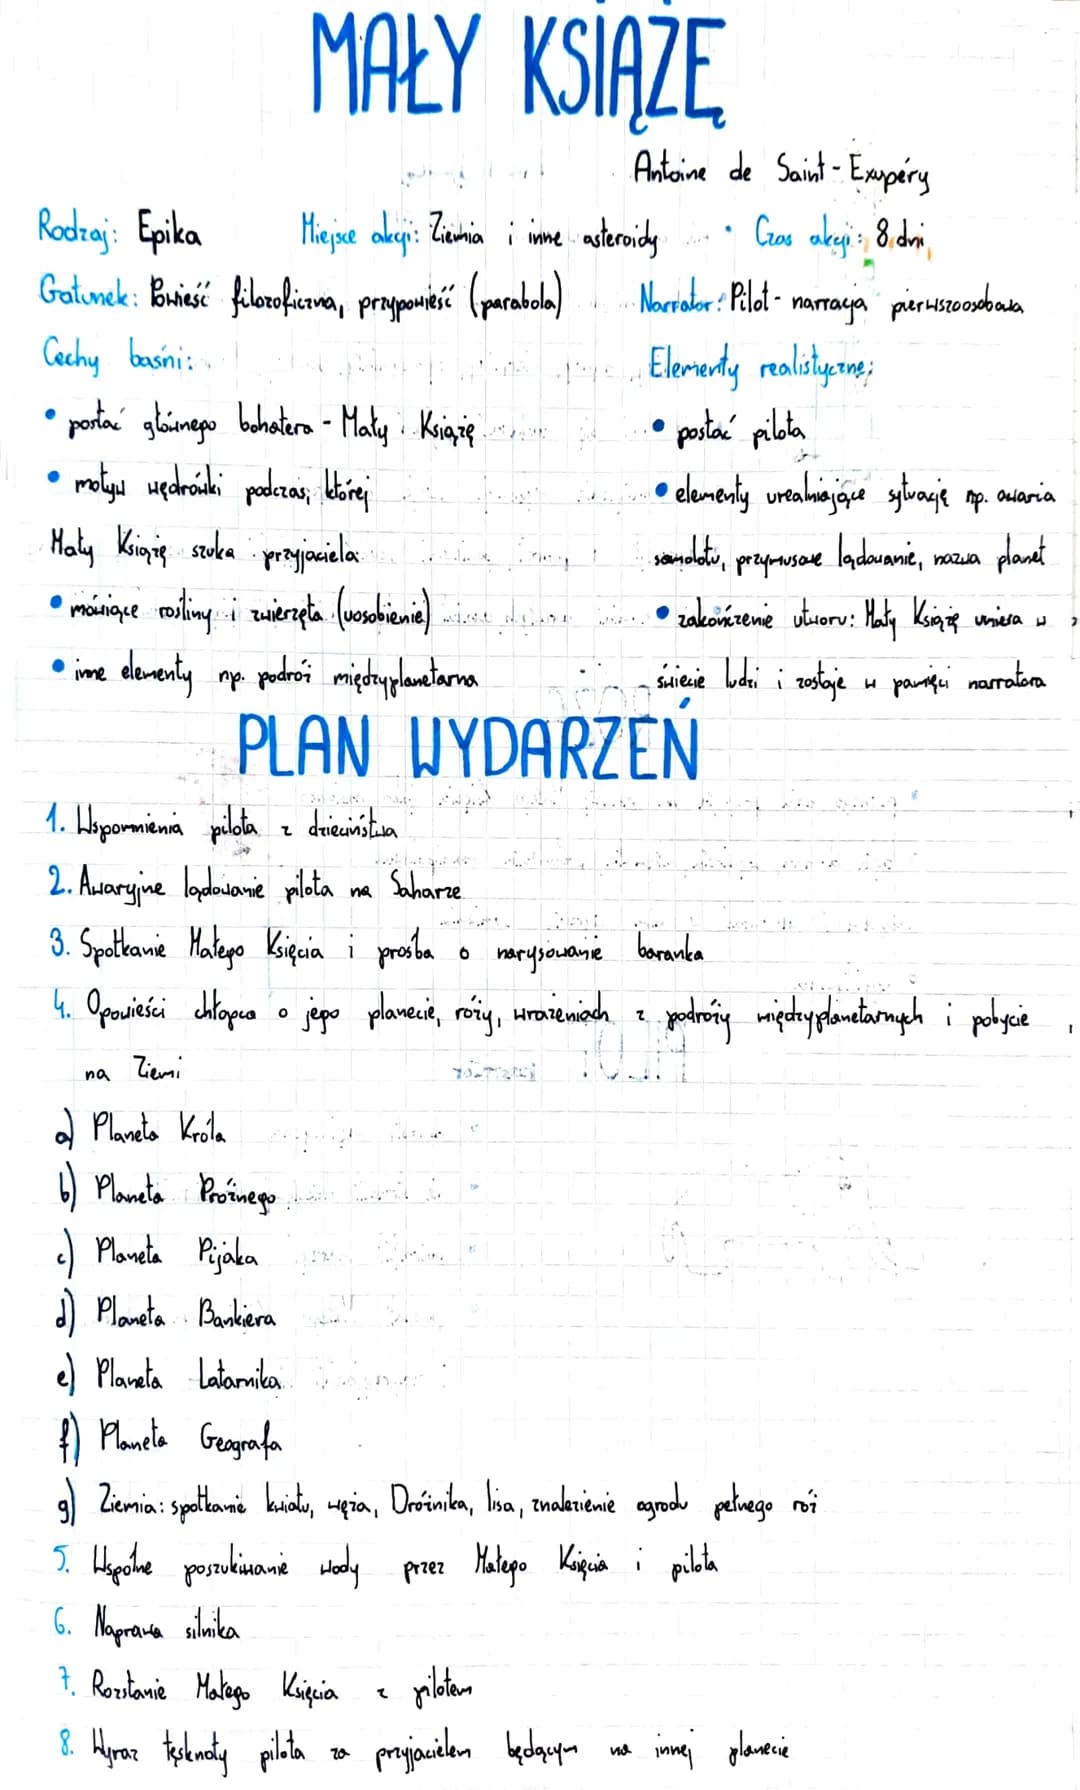 MAŁY KSIĄŻĘ
Antoine de Saint-Exupéry
Rodzaj: Epika Miejsce akcji: Ziemia i inne asteroidy Czas akcji: 8 dni
Gatunek: Powieść filozoficzna, przypowieść (parabola) Narrator: Pilot - narracja pierwszoosobowa
Cechy baśni:
• postać głównego bohatera - Mały Książę
• motyw wędrówki podczas, której
Mały Książę szuka przyjaciela
• mówiące rośliny i zwierzęta (uosobienie)
• inne elementy np. podróż międzyplanetarna
Elementy realistyczne:
• postać pilota
• elementy urealniające sytuację np. awaria
samolotu, przymusowe lądowanie, nazwa planet
• zakończenie utworu: Mały Książę umiera w
świecie ludzi i zostaje w pamięci narratora
PLAN WYDARZEŃ
1. Wspomnienia pilota z dzieciństwa
2. Awaryjne lądowanie pilota na Saharze
3. Spotkanie Małego Księcia i prośba o narysowanie baranka
4. Opowieści chłopca o jego planecie, róży, wrażeniach z podróży międzyplanetarnych i pobycie
na Ziemi
a) Planeta Króla
b) Planeta Próżnego
c) Planeta Pijaka
d) Planeta Bankiera
e) Planeta Latarnika
f) Planeta Geografa
g) Ziemia: spotkanie kwiatu, węża, Dróżnika, lisa, znalezienie ogrodu pełnego róż
5. Wspólne poszukiwanie wody przez Małego Księcia i pilota
6. Naprawa silnika
7. Rozstanie Małego Księcia z pilotem
8. Wyraz tęsknoty pilota za przyjacielem będącym na innej planecie